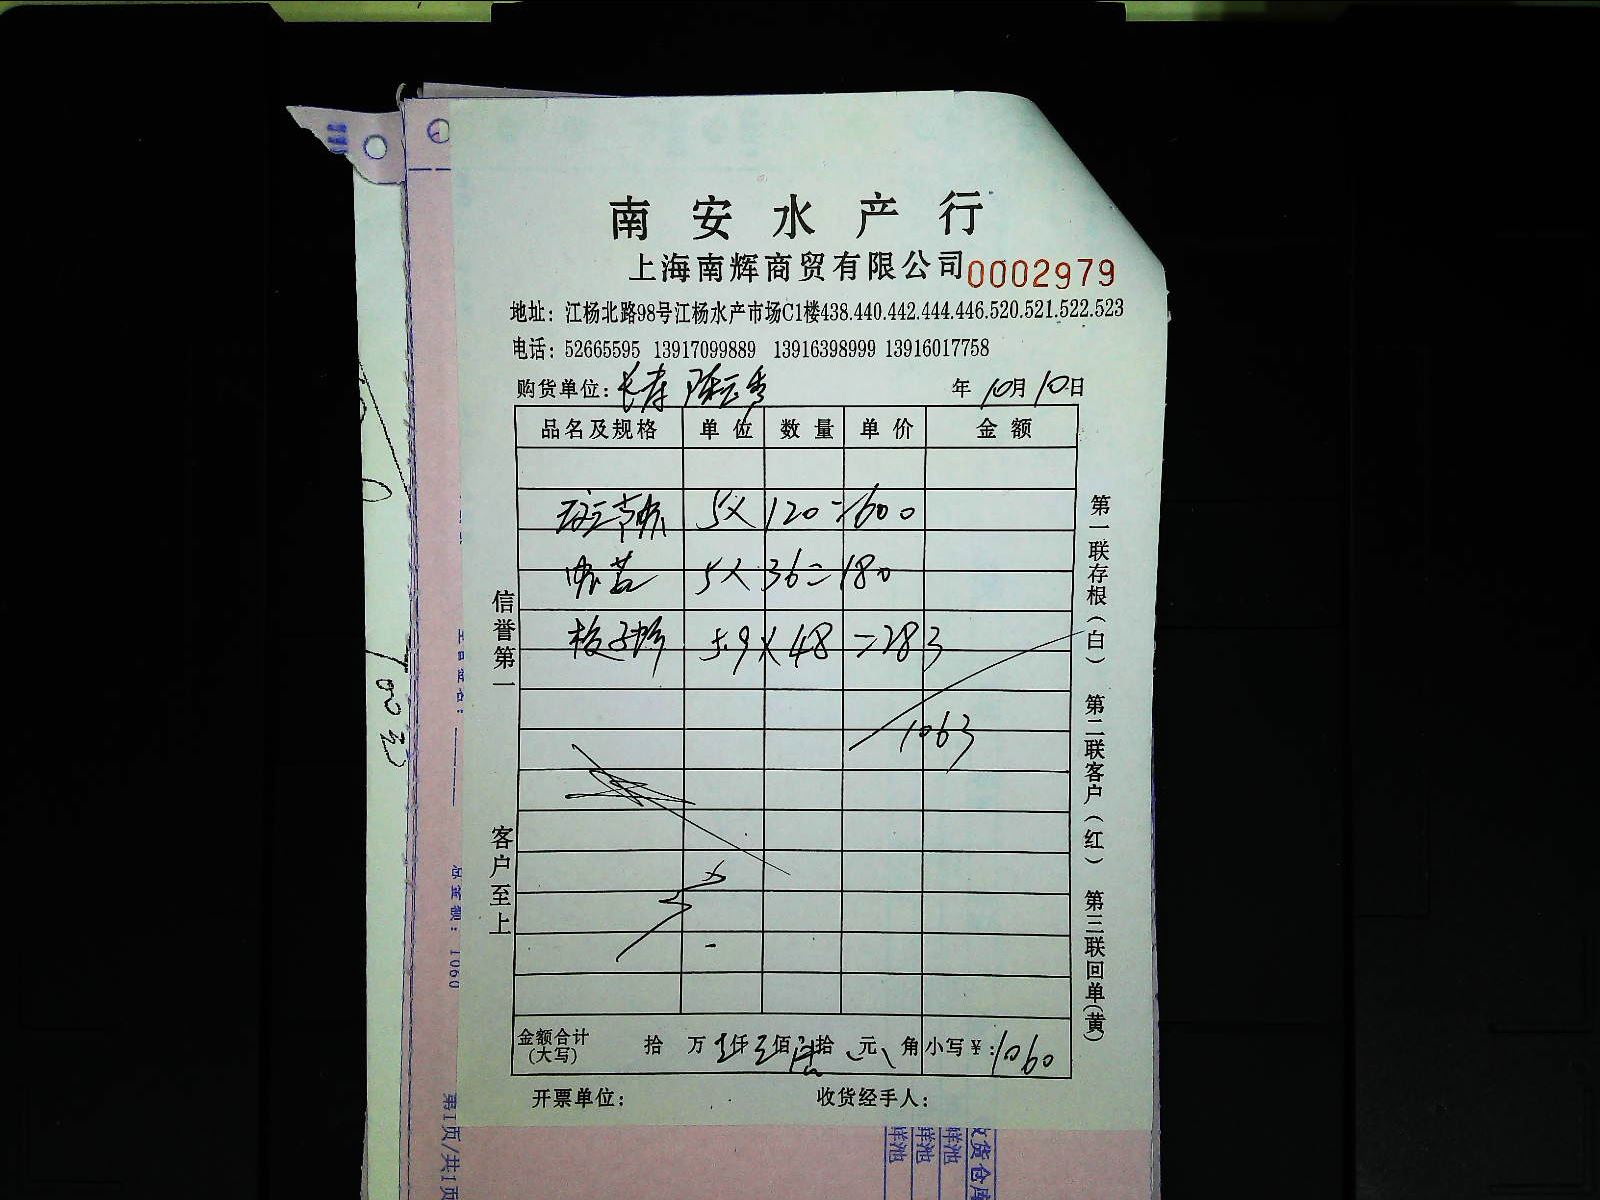 南安水产行
上海南辉商贸有限公司 0002979
地址：江杨北路98号江杨水产市场C1楼438.440.442.444.446.520.521.522.523
电话：52665595 13917099889 13916398999 13916017758
购货单位：长寿 陈云秀 年 10月10日
品名及规格 单位 数量 单价 金额
5× 120=600
5× 36=180
5.9×48=283
1063
金额合计(大写) 拾 万 仟 佰 拾 元 角 小写￥：1060
开票单位： 收货经手人：
信誉第一
客户至上
第一联存根（白） 第二联客户（红） 第三联回单(黄)
总金额：1060
第1页/共1页
收货仓库
鲜池
鲜池
鲜池